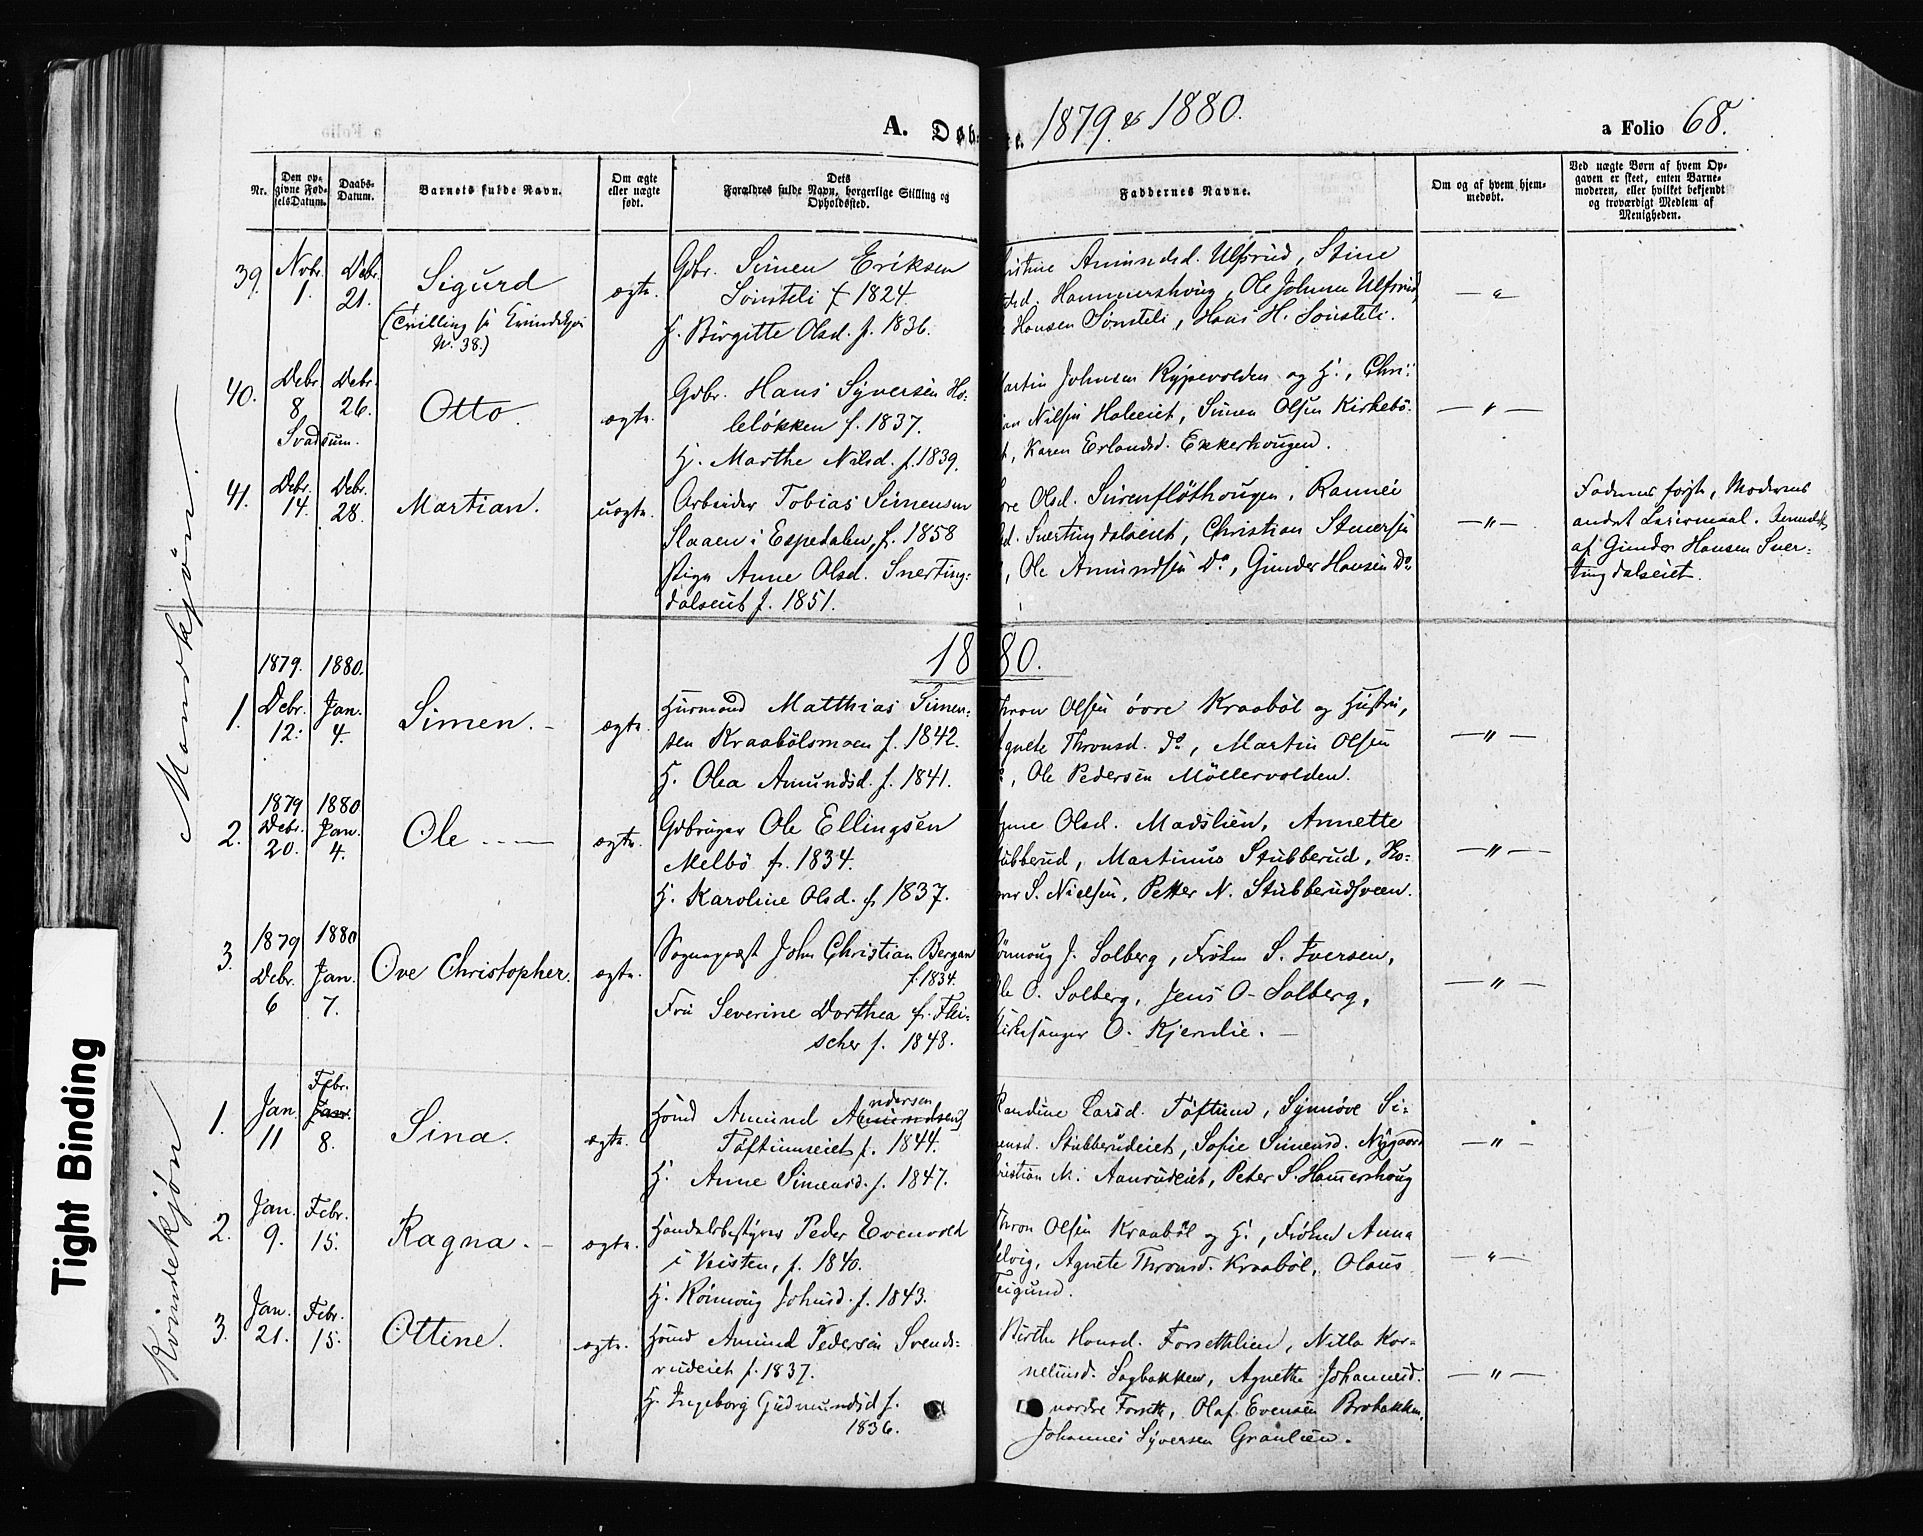 A. Døb
e. 1879 & 1880.
a Folio 68.
Nr.
Den op-
givne Fød-
selsDatum.
Daabs-
Datum.
Barnets fulde Navn.
Om ægte
eller uægte
født.
Dets
Forældres fulde Navn, borgerlige Stilling og
Opholdssted.
Faddernes Navne.
Om og af hvem hjem-
medøbt.
Ved uægte Børn af hvem Op-
gaven er skeet, enten Barne-
moderen, eller hvilket bekjendt
og troværdigt Medlem af
Menigheden.
Mandkjøn.
39. Nvbr. 1. Debr. 21. Sigurd
(Tvilling fr Kvindekjøn
N. 38.)
ægte.
Gbr. Simen Eriksen
Sønsteli f. 1824.
H. Birgitte Olsd. f. 1836.
ristine Amundsd. Ulfsrud, Stine
dsd. Hammershoug, Ole Johnsen Ulfsrud,
Hansen Sønsteli, Hans H. Sønsteli.
— " —
40. Debr. 8 Debr. 26. Otto.
Svadsum.
ægte.
Gdbr. Hans Syversen Ho-
leløkken f. 1837.
H. Marthe Nilsd. f. 1839.
artin Johnsen Rypevolden og H., Chri-
an Nilsen Holeeiet, Simen Olsen Kirkebö-
t, Karen Erlandsd. Ekkerhougen.
— " —
41. Debr. 14. Debr. 28. Martian.
uægte.
Arbeider Tobias Simensen
Slaaen i Espedalen, f. 1858
Pige Anne Olsd. Sverting-
dalseiet f. 1851.
ore Olsd. Surenflöthougen, Rannei
d. Svertingdalseiet, Christian Simensen
, Ole Amundsen Do, Gunder Hansen Do
— " —
Faderens første, Moderens
andet Leiermaal. Anmeldt
af Gunder Hansen Sver-
tingdalseiet.
1880.
1. 1879. Debr. 12. 1880. Jan. 4. Simen. —
ægte.
Husmand Matthias Simen-
sen Kraabölsmoen f. 1842.
H. Olea Amundsd. f. 1841.
Thron Olsen övre Kraaböl og Hustru,
gnete Thronsd. do, Martin Olsen
, Ole Pedersen Möllervolden.
— " —
2. 1879 Debr. 20. 1880 Jan. 4. Ole. —
ægte.
Gdbruger Ole Ellingsen
Melbö f. 1834.
H. Karoline Olsd. f. 1837.
gne Olsd. Madslien, Annette
tubberud, Martinus Stubberud, Tho-
mas S. Nielsen, Petter N. Stubberudsveen.
— " —
3. 1879 Debr. 6 1880 Jan. 7. Ove Christopher.
ægte.
Sognepræst John Christian Bergan
f. 1834.
Fru Severine Dorthea f. Flei-
scher f. 1848.
önnoug J. Solberg, Frøken S. Iversen,
le O. Solberg, Jens O. Solberg,
irkesanger O. Kjernlie. —
— " —
Kvindekjøn
1. Jan. 11 Febr. Jan. 8. Sina.
ægte.
Hsmd Amund Amundsen ndersen
Töftumseiet f. 1844.
H. Anne Simensd. f. 1847.
Randine Larsd. Töftum, Synnöve Si-
mensd. Stubberudeiet, Sofie Simensd. Nygaard
ristian M. Aanrudeiet, Peter S. Hamershoug
— " —
2. Jan. 9. Febr. 15. Ragna. —
ægte.
Handelsbestyrer Peder Evenvold
i Veisten, f. 1840.
H. Rönnoug Johnsd. f. 1843.
Thron Olsen Kraaböl og H., Frøken Anna
elvig, Agnete Thronsd. Kraaböl, Olaus
Teigund.
— " —
3. Jan. 21. Febr. 15. Ottine.
ægte.
Hsmd Amund Pedersen Svends-
rudeiet f. 1837.
H. Ingeborg Gudmundsd f.
1836.
Birthe Hansd. Forsethlien, Nilla Kor-
neliusd. Sagbakken, Agnethe Johannesd.
nordre Forseth, Olaf Evensen Brobakken,
Johannes Syversen Granlien.
— " —
Tight Binding